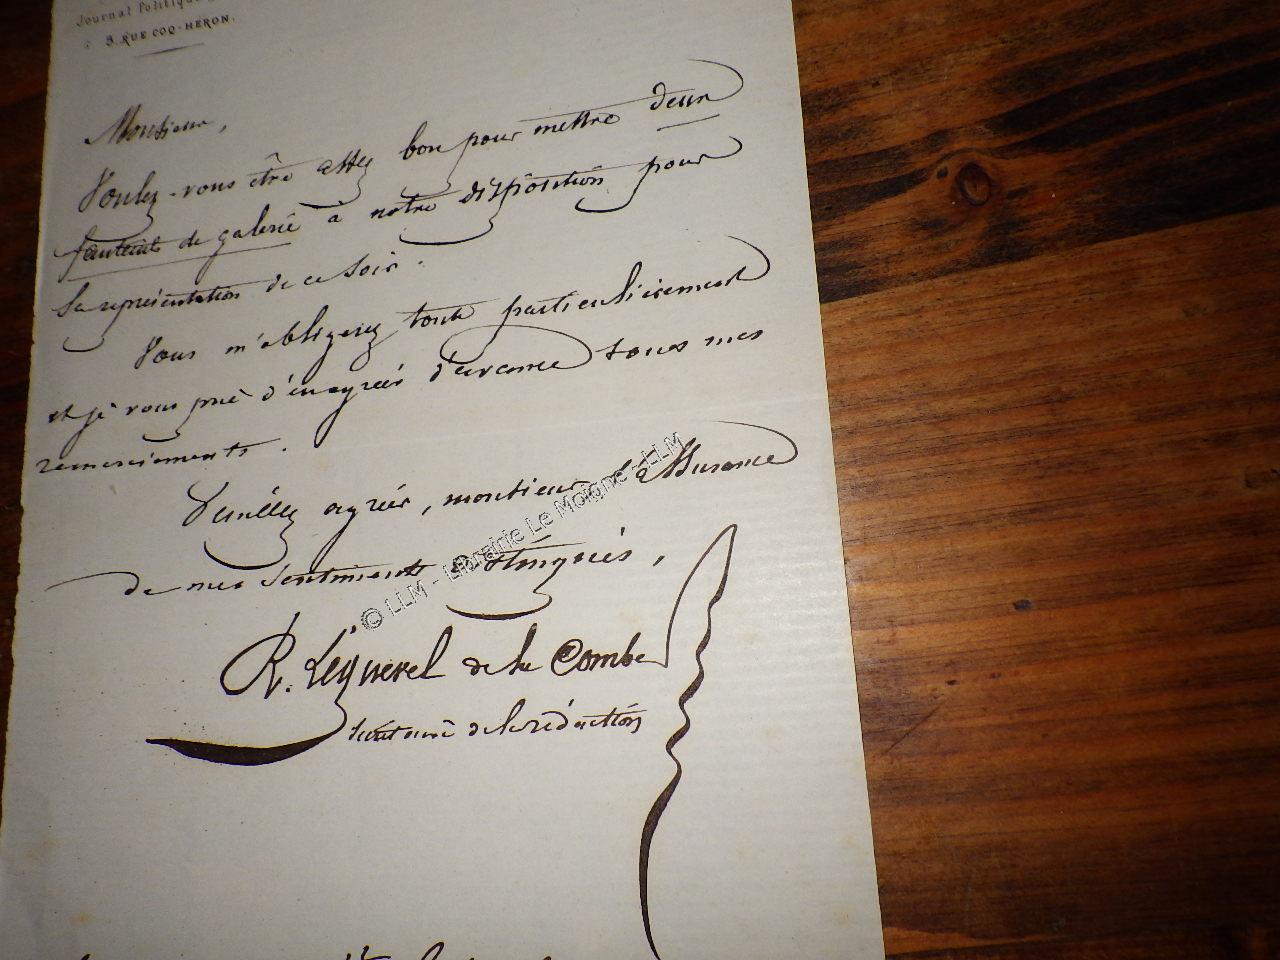 Journal Politique
5. RUE COQ-HÉRON.
Monsieur,
Voulez-vous être assez bon pour mettre deux
fauteuils de galerie à notre disposition pour
la représentation de ce soir.
Vous m'obligerez toute particulièrement
et je vous prie d'en agréer d'avance tous mes
remerciements.
Veuillez agréer, monsieur, l'assurance
de mes sentiments distingués,
R. Lequerel de la Combe
secrétaire de la rédaction
© LLM - Librairie Le Moigne - LLM